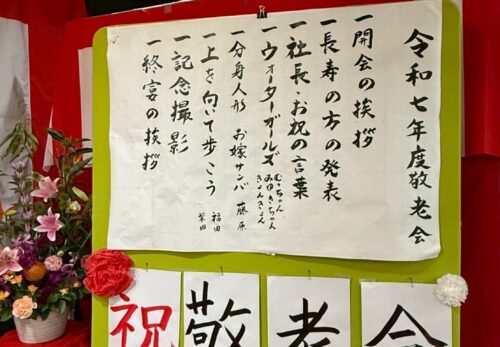 令和七年度敬老会
一開会の挨拶
一長寿の方の発表
一社長・お祝の言葉
一ウォーターガールズ むっちゃん みゆきちゃん きょんきょん
一分身人形 お嫁サンバ 藤原
一上を向いて歩こう 福田 柴田
一記念撮影
一終宴の挨拶
祝敬老会